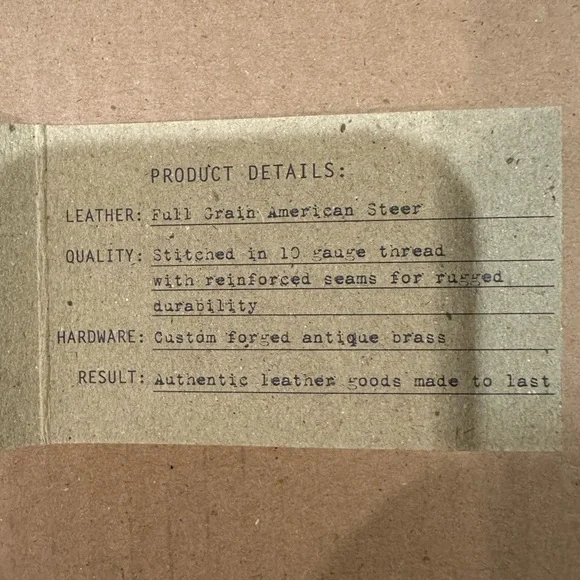 PRODUCT DETAILS:
LEATHER: Full Grain American Steer
QUALITY: Stitched in 10 gauge thread
with reinforced seams for rugged
durability
HARDWARE: Custom forged antique brass
RESULT: Authentic leather goods made to last